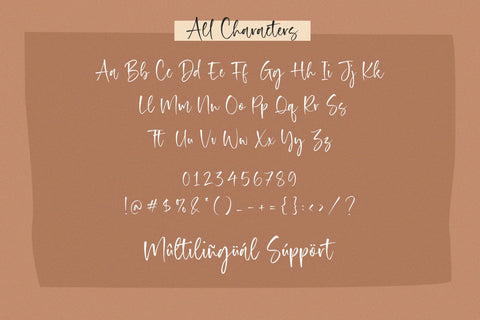 All Characters
Aa Bb Cc Dd Ee Ff Gg Hh Ii Jj Kk
Ll Mm Nn Oo Pp Qq Rr Ss
Tt Uu Vv Ww Xx Yy Zz
0123456789
!@#$%&*()_-+={}:<>/?
Mûltilïñgüál Súppört